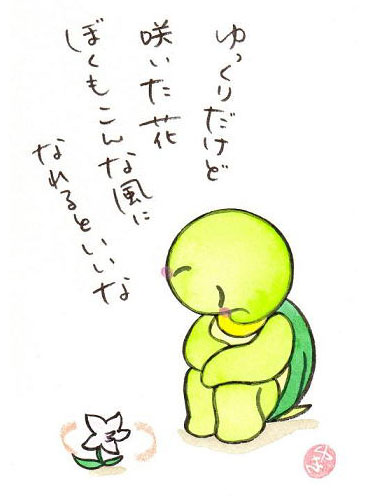 ゆっくりだけど
咲いた花
ぼくもこんな風に
なれるといいな